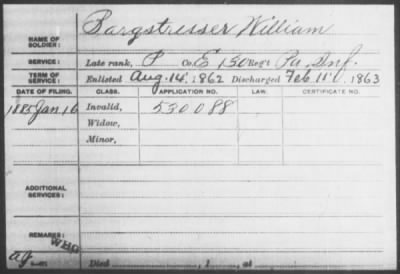 NAME OF SOLDIER: Bargstresser William
SERVICE: Late rank, P Co. E 150 Reg't Pa. Inf.
TERM OF SERVICE: Enlisted Aug. 14, 1862 Discharged Feb 11, 1863
DATE OF FILING. CLASS. APPLICATION NO. LAW. CERTIFICATE NO.
1885 Jan 16 Invalid, 530088
Widow,
Minor,
ADDITIONAL SERVICES:
REMARKS: WHG
Died , 1 , at